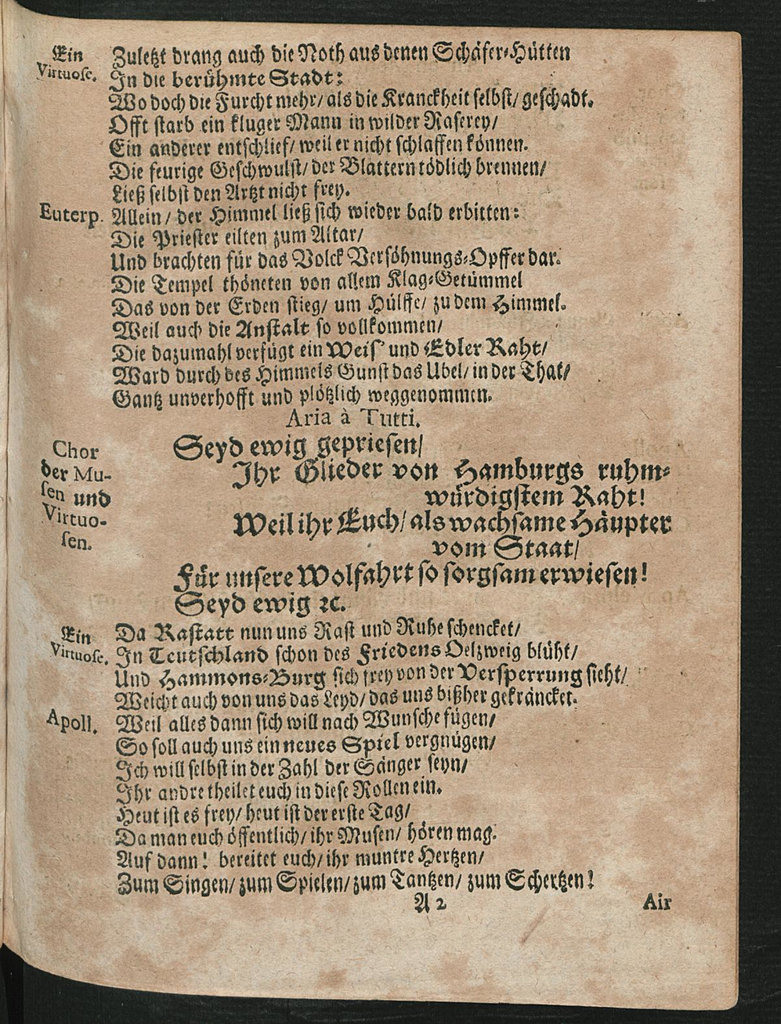 Ein Zuletzt drang auch die Noth aus denen Schäfer-Hütten
Virtuose. In die berühmte Stadt:
Wo doch die Furcht mehr/ als die Kranckheit selbst/ geschadt.
Offt starb ein kluger Mann in wilder Raserey/
Ein anderer entschlief/ weil er nicht schlaffen können.
Die feurige Geschwulst/ der Blattern tödlich brennen/
Ließ selbst den Artzt nicht frey.
Euterp. Allein/ der Himmel ließ sich wieder bald erbitten:
Die Priester eilten zum Altar/
Und brachten für das Volck Versöhnungs-Opffer dar.
Die Tempel thöneten von allem Klag-Getümmel
Das von der Erden stieg/ um Hülffe/ zu dem Himmel.
Weil auch die Anstalt so vollkommen/
Die dazumahl verfügt ein Weis' und Edler Raht/
Ward durch des Himmels Gunst das Ubel/ in der That/
Gantz unverhofft und plötzlich weggenommen.
Aria à Tutti.
Chor der Mu-
sen und
Virtuo-
sen.
Seyd ewig gepriesen/
Ihr Glieder von Hamburgs ruhm-
würdigstem Raht!
Weil ihr Euch/ als wachsame Häupter
vom Staat/
Für unsere Wolfahrt so sorgsam erwiesen!
Seyd ewig ꝛc.
Ein Da Rastatt nun uns Rast und Ruhe schencket/
Virtuose. In Teutschland schon des Friedens Oelzweig blüht/
Und Hammons-Burg sich frey von der Versperrung sieht/
Weicht auch von uns das Leyd/ das uns bißher gekräncket.
Apoll. Weil alles dann sich will nach Wunsche fügen/
So soll auch uns ein neues Spiel vergnügen/
Ich will selbst in der Zahl der Sänger seyn/
Ihr andre theilet euch in diese Rollen ein.
Heut ist es frey/ heut ist der erste Tag/
Da man euch öffentlich/ ihr Musen/ hören mag.
Auf dann! bereitet euch/ ihr muntre Hertzen/
Zum Singen/ zum Spielen/ zum Tantzen/ zum Schertzen!
A 2 Air